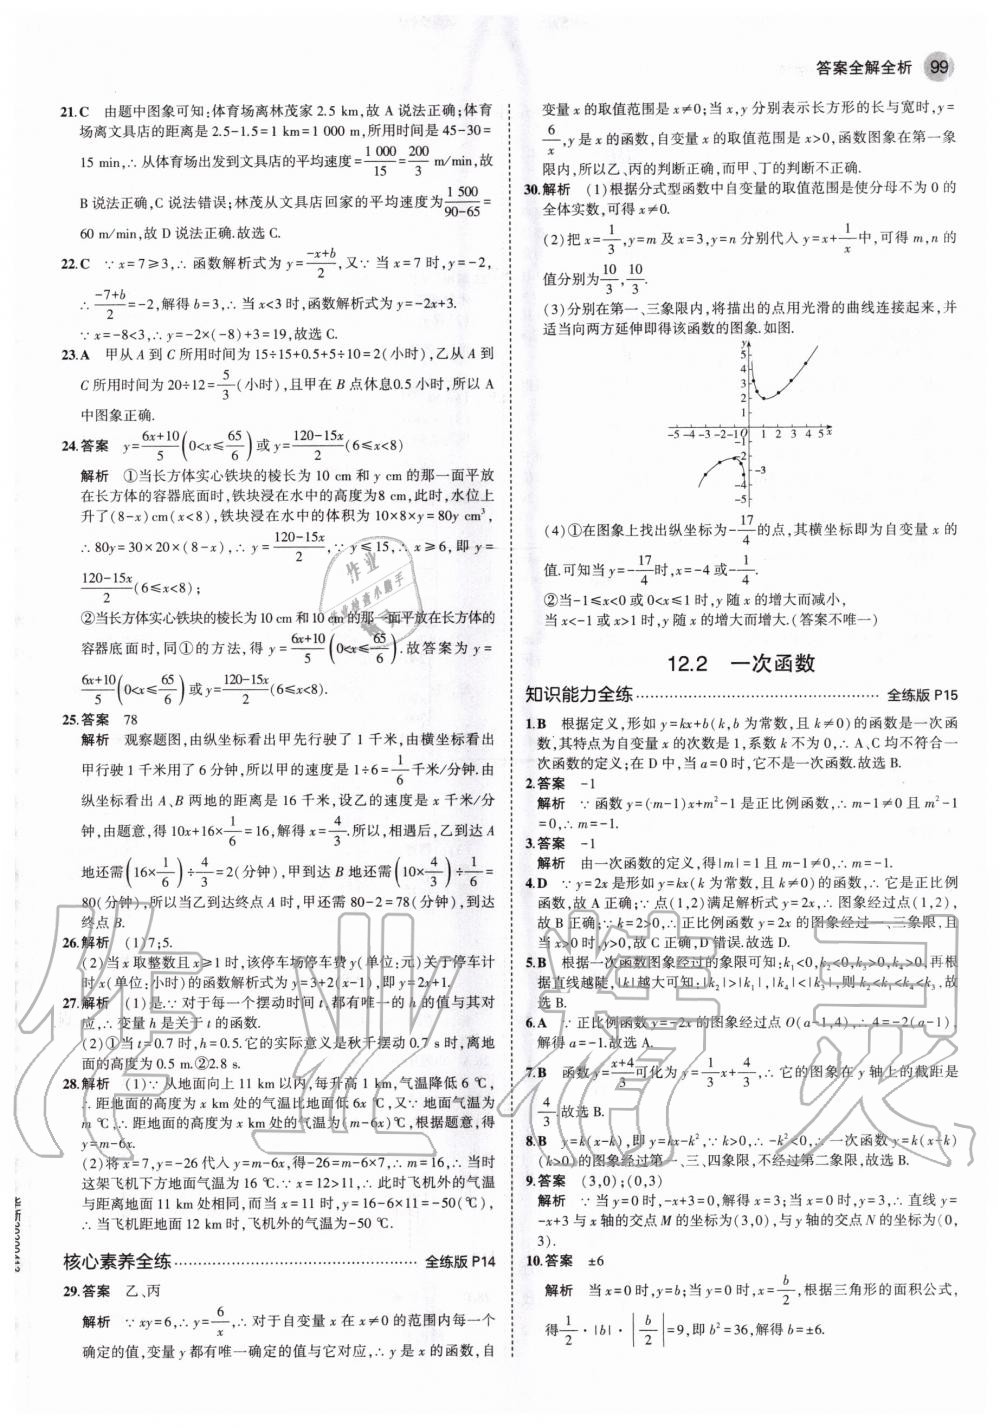 答案全解全析 99
21.C 由题中图象可知:体育场离林茂家 2.5 km,故 A 说法正确;体育
场离文具店的距离是 2.5-1.5=1 km=1 000 m,所用时间是 45-30=
15 min,∴从体育场出发到文具店的平均速度=1 000/15=200/3 m/min,故
B 说法正确,C 说法错误;林茂从文具店回家的平均速度为1 500/90-65=
60 m/min,故 D 说法正确.故选 C.
22.C ∵x=7≥3,∴函数解析式为 y=-x+b/2,又∵当 x=7 时,y=-2,
∴-7+b/2=-2,解得 b=3,∴当 x<3 时,函数解析式为 y=-2x+3.
∵x=-8<3,∴y=-2×(-8)+3=19,故选 C.
23.A 甲从 A 到 C 所用时间为 15÷15+0.5+5÷10=2(小时),乙从 A 到
C 所用时间为 20÷12=5/3(小时),且甲在 B 点休息0.5 小时,所以 A
中图象正确.
24.答案 y=6x+10/5(0<x≤65/6)或 y=120-15x/2(6≤x<8)
解析 ①当长方体实心铁块的棱长为 10 cm 和 y cm 的那一面平放
在长方体的容器底面时,铁块浸在水中的高度为8 cm,此时,水位上
升了(8-x)cm(x<8),铁块浸在水中的体积为 10×8×y=80y cm³,
∴80y=30×20×(8-x),∴y=120-15x/2,∵y≤15,∴x≥6,即 y=
120-15x/2(6≤x<8);
②当长方体实心铁块的棱长为 10 cm 和 10 cm 的那一面平放在长方体的
容器底面时,同①的方法,得 y=6x+10/5(0<x≤65/6).故答案为 y=
6x+10/5(0<x≤65/6)或 y=120-15x/2(6≤x<8).
25.答案 78
解析 观察题图,由纵坐标看出甲先行驶了 1 千米,由横坐标看出
甲行驶 1 千米用了 6 分钟,所以甲的速度是 1÷6=1/6千米/分钟.由
纵坐标看出 A、B 两地的距离是 16 千米,设乙的速度是 x 千米/分
钟,由题意,得 10x+16×1/6=16,解得 x=4/3.所以,相遇后,乙到达 A
地还需(16×1/6)÷4/3=2(分钟),甲到达 B 地还需(10×4/3)÷1/6=
80(分钟),所以当乙到达终点 A 时,甲还需 80-2=78(分钟)到达
终点 B.
26.解析 (1)7;5.
(2)当 x 取整数且 x≥1 时,该停车场停车费 y(单位:元)关于停车计
时 x(单位:小时)的函数解析式为 y=3+2(x-1),即 y=2x+1.
27.解析 (1)是.∵对于每一个摆动时间 t 都有唯一的 h 的值与其对
应,∴变量 h 是关于 t 的函数.
(2)①当 t=0.7 时,h=0.5.它的实际意义是秋千摆动 0.7 s 时,离地
面的高度为 0.5 m.②2.8 s.
28.解析 (1)∵从地面向上 11 km 以内,每升高 1 km,气温降低 6 ℃,
∴距地面的高度为 x km 处的气温比地面低 6x ℃,又∵地面气温为
m ℃,∴距地面的高度为 x km 处的气温为(m-6x)℃,根据题意,得
y=m-6x.
(2)将 x=7,y=-26 代入 y=m-6x,得-26=m-6×7,∴m=16,∴当时
这架飞机下方地面气温为 16 ℃.∵x=12>11,∴此时飞机外的气温
与距离地面 11 km 处相同,而当 x=11 时,y=16-6×11=-50(℃),
∴当飞机距地面 12 km 时,飞机外的气温为-50 ℃.
核心素养全练 全练版 P14
29.答案 乙、丙
解析 ∵xy=6,∴y=6/x,∴对于自变量 x 在 x≠0 的范围内每一个
确定的值,变量 y 都有唯一确定的值与它对应,∴y 是 x 的函数,自
变量 x 的取值范围是 x≠0;当 x,y 分别表示长方形的长与宽时,y=
6/x,y 是 x 的函数,自变量 x 的取值范围是 x>0,函数图象在第一象
限内,所以乙、丙的判断正确,而甲、丁的判断不正确.
30.解析 (1)根据分式型函数中自变量的取值范围是使分母不为 0 的
全体实数,可得 x≠0.
(2)把 x=1/3,y=m 及 x=3,y=n 分别代入 y=x+1/x中,可得 m,n 的
值分别为10/3,10/3.
(3)分别在第一、三象限内,将描出的点用光滑的曲线连接起来,并
适当向两方延伸即得该函数的图象.如图.
y
5
4
3
2
1
-5 -4 -3 -2 -1 O 1 2 3 4 5 x
-2
-3
-4
-5
(4)①在图象上找出纵坐标为-17/4的点,其横坐标即为自变量 x 的
值.可知当 y=-17/4时,x=-4 或-1/4.
②当-1≤x<0 或 0<x≤1 时,y 随 x 的增大而减小,
当 x<-1 或 x>1 时,y 随 x 的增大而增大.(答案不唯一)
12.2 一次函数
知识能力全练 全练版 P15
1.B 根据定义,形如 y=kx+b(k,b 为常数,且 k≠0)的函数是一次函
数,其特点为自变量 x 的次数是 1,系数 k 不为 0,∴A、C 均不符合一
次函数的定义;在 D 中,当 a=0 时,它不是一次函数.故选 B.
2.答案 -1
解析 ∵函数 y=(m-1)x+m²-1 是正比例函数,∴m-1≠0 且 m²-1
=0,∴m=-1.
3.答案 -1
解析 由一次函数的定义,得|m|=1 且 m-1≠0,∴m=-1.
4.D ∵y=2x 是形如 y=kx(k 为常数,且 k≠0)的函数,∴它是正比例
函数,故 A 正确;∵点(1,2)满足解析式 y=2x,∴图象经过点(1,2),
故 B 正确;∵k=2>0,∴正比例函数 y=2x 的图象经过一、三象限,且
当 x>0 时,y>0,故 C 正确,D 错误.故选 D.
5.B 根据一次函数图象经过的象限可知:k₁<0,k₂<0,k₃>0,k₄>0,再根
据直线越陡,|k|越大可知:|k₂|>|k₁|,|k₄|<|k₃|,则 k₂<k₁<k₄<k₃.故
选 B.
6.A ∵正比例函数 y=-2x 的图象经过点 O(a-1,4),∴4=-2(a-1),
解得 a=-1.故选 A.
7.B 函数 y=x+4/3可化为 y=1/3x+4/3,∴它的图象在 y 轴上的截距是
4/3.故选 B.
8.B y=k(x-k),即 y=kx-k²,∵k>0,∴-k²<0,∴一次函数 y=k(x-k)
(k>0)的图象经过第一、三、四象限,不经过第二象限,故选 B.
9.答案 (3,0);(0,3)
解析 ∵当 y=0 时,-x+3=0,解得 x=3;当 x=0 时,y=3,∴直线 y=
-x+3 与 x 轴的交点 M 的坐标为(3,0),与 y 轴的交点 N 的坐标为(0,
3).
10.答案 ±6
解析 当 x=0 时,y=b;当 y=0 时,x=b/2,根据三角形的面积公式,
得1/2·|b|·|b/2|=9,即 b²=36,解得 b=±6.
作业
作业检查小助手
作业精灵